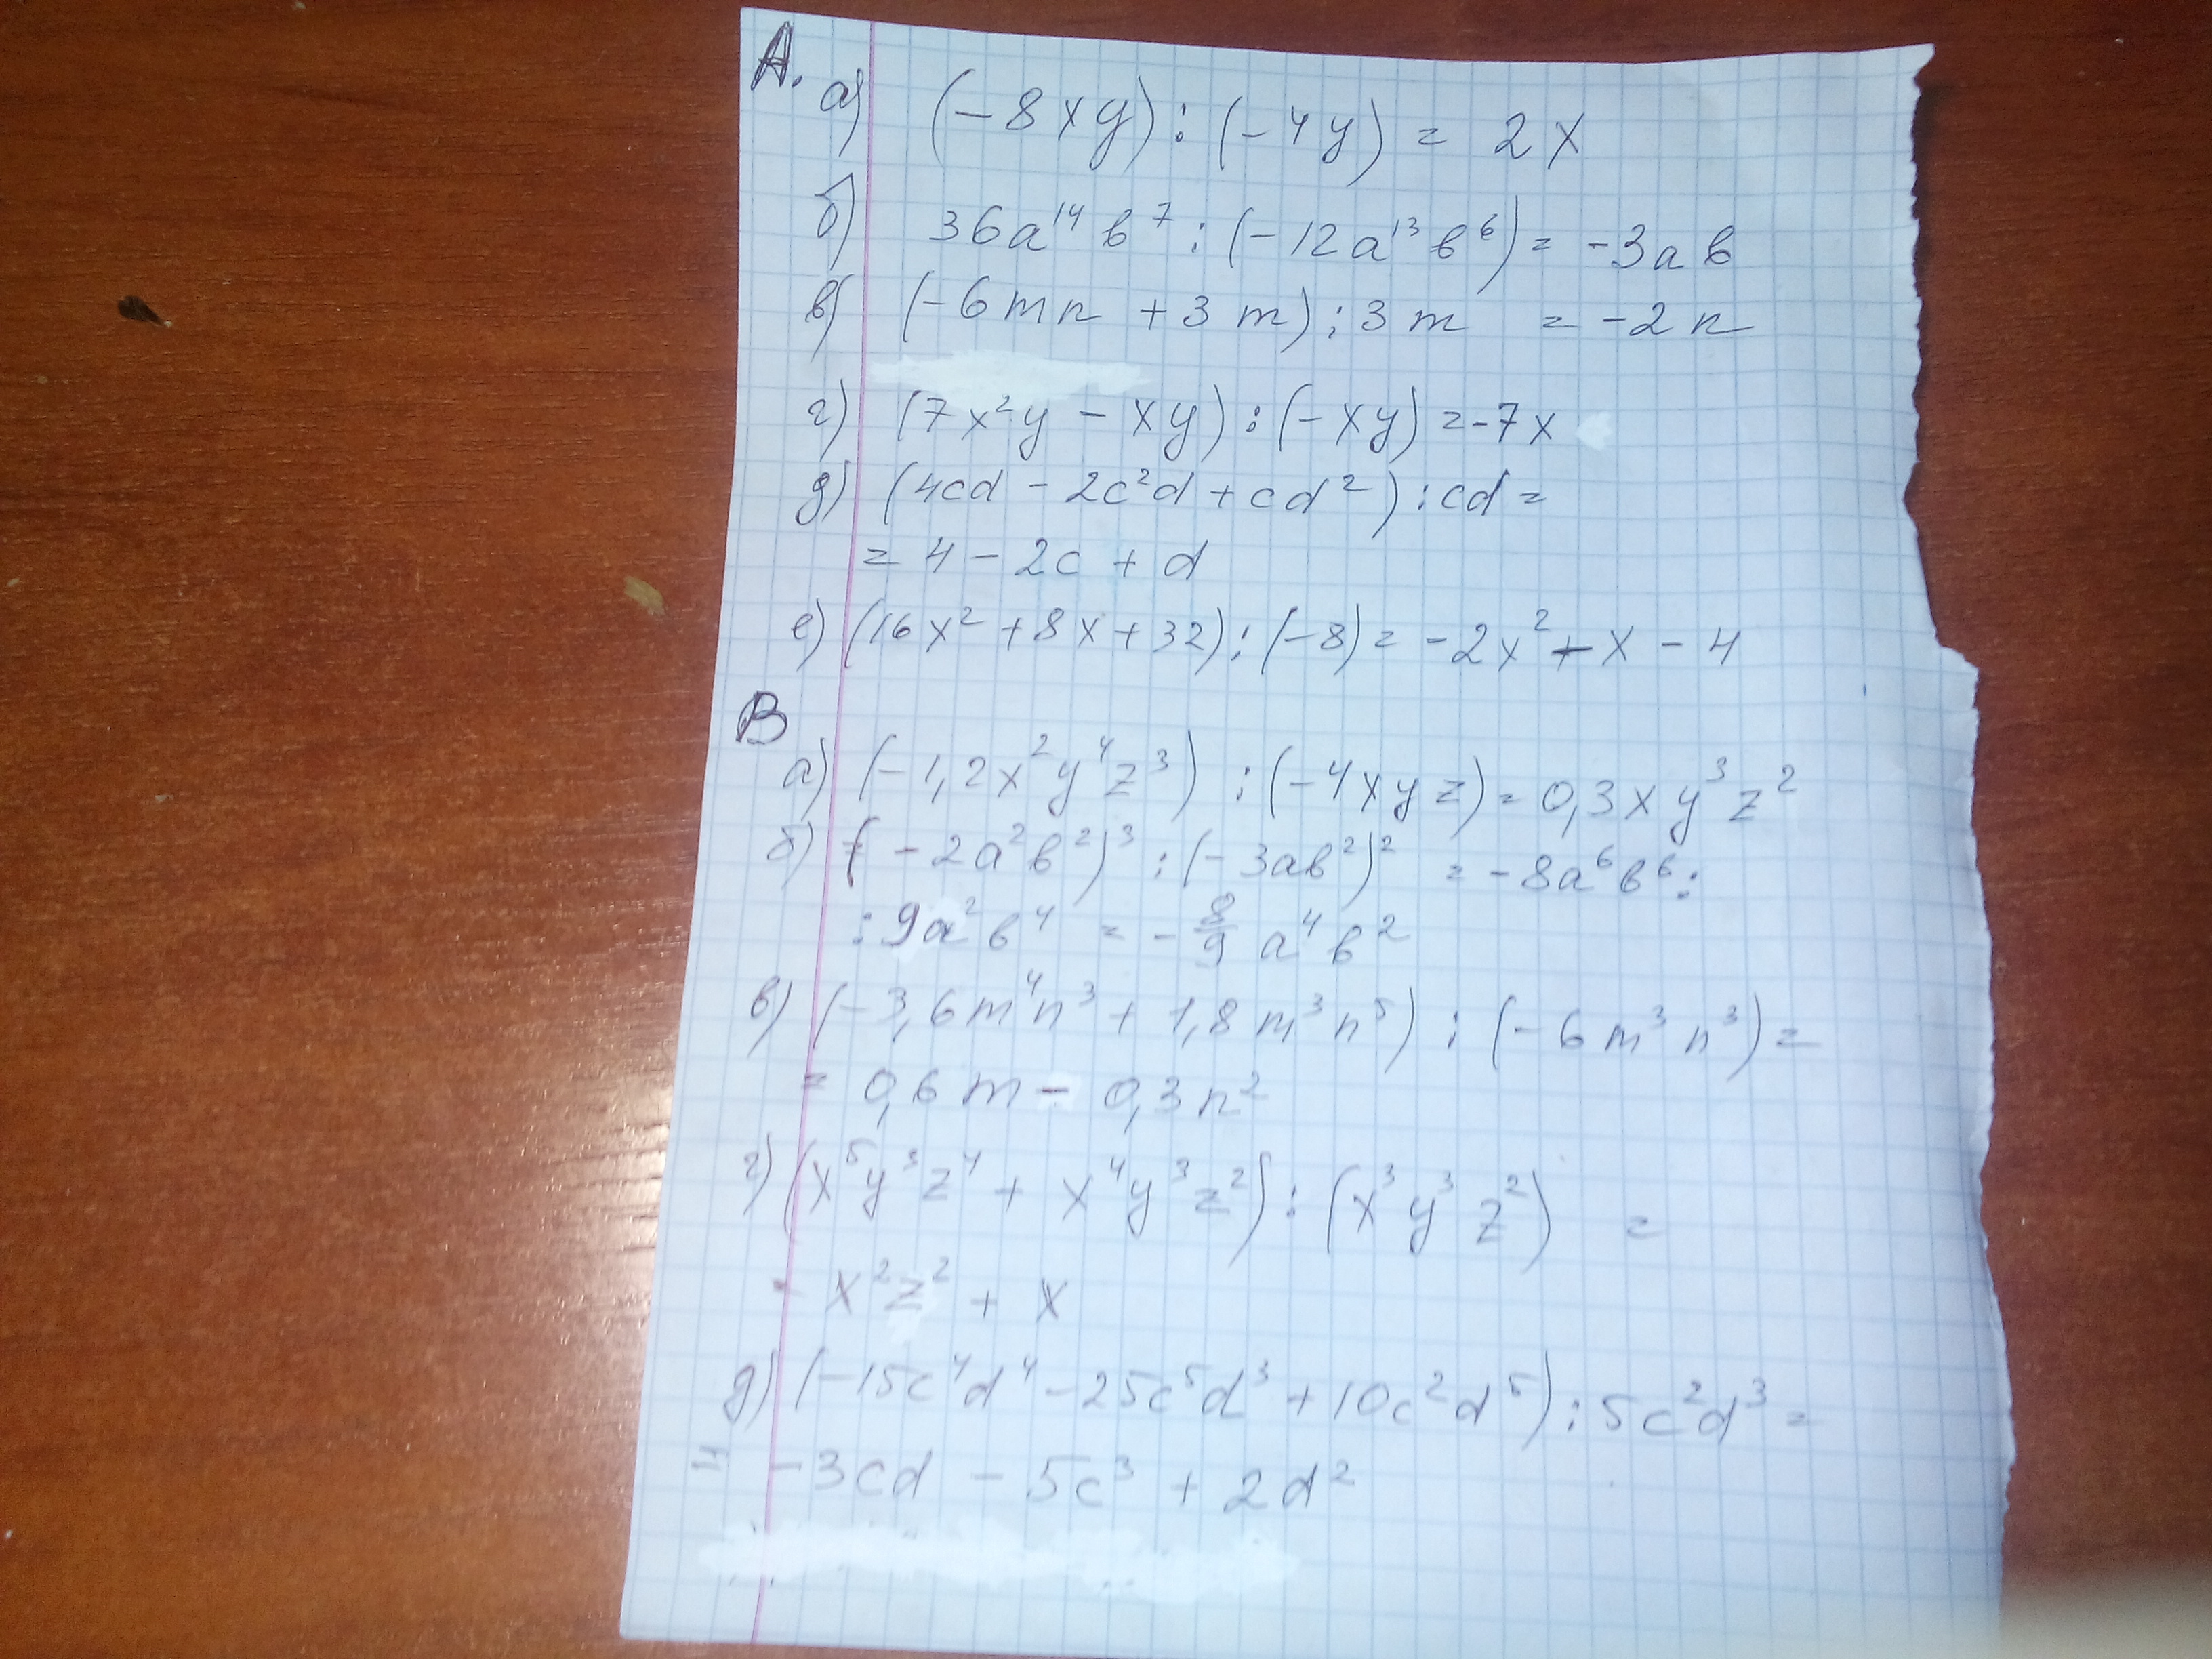 А.
а) (-8xy) : (-4y) = 2x
б) 36a¹⁴в⁷ : (-12a¹³в⁶) = -3aв
в) (-6mn + 3m) : 3m = -2n
г) (7x²y - xy) : (-xy) = -7x
д) (4cd - 2c²d + cd²) : cd =
= 4 - 2c + d
е) (16x² + 8x + 32) : (-8) = -2x² - x - 4
В
а) (-1,2x²y⁴z³) : (-4xyz) = 0,3xy³z²
б) (-2a²в²)³ : (-3aв²)² = -8a⁶в⁶ :
: 9a²в⁴ = -8/9 a⁴в²
в) (-3,6m⁴n³ + 1,8m³n⁵) : (-6m³n³) =
= 0,6m - 0,3n²
г) (x⁵y³z⁴ + x⁴y³z²) : (x³y³z²) =
= x²z² + x
д) (-15c⁴d⁴ - 25c⁵d³ + 10c²d⁵) : 5c²d³ =
= -3cd - 5c³ + 2d²